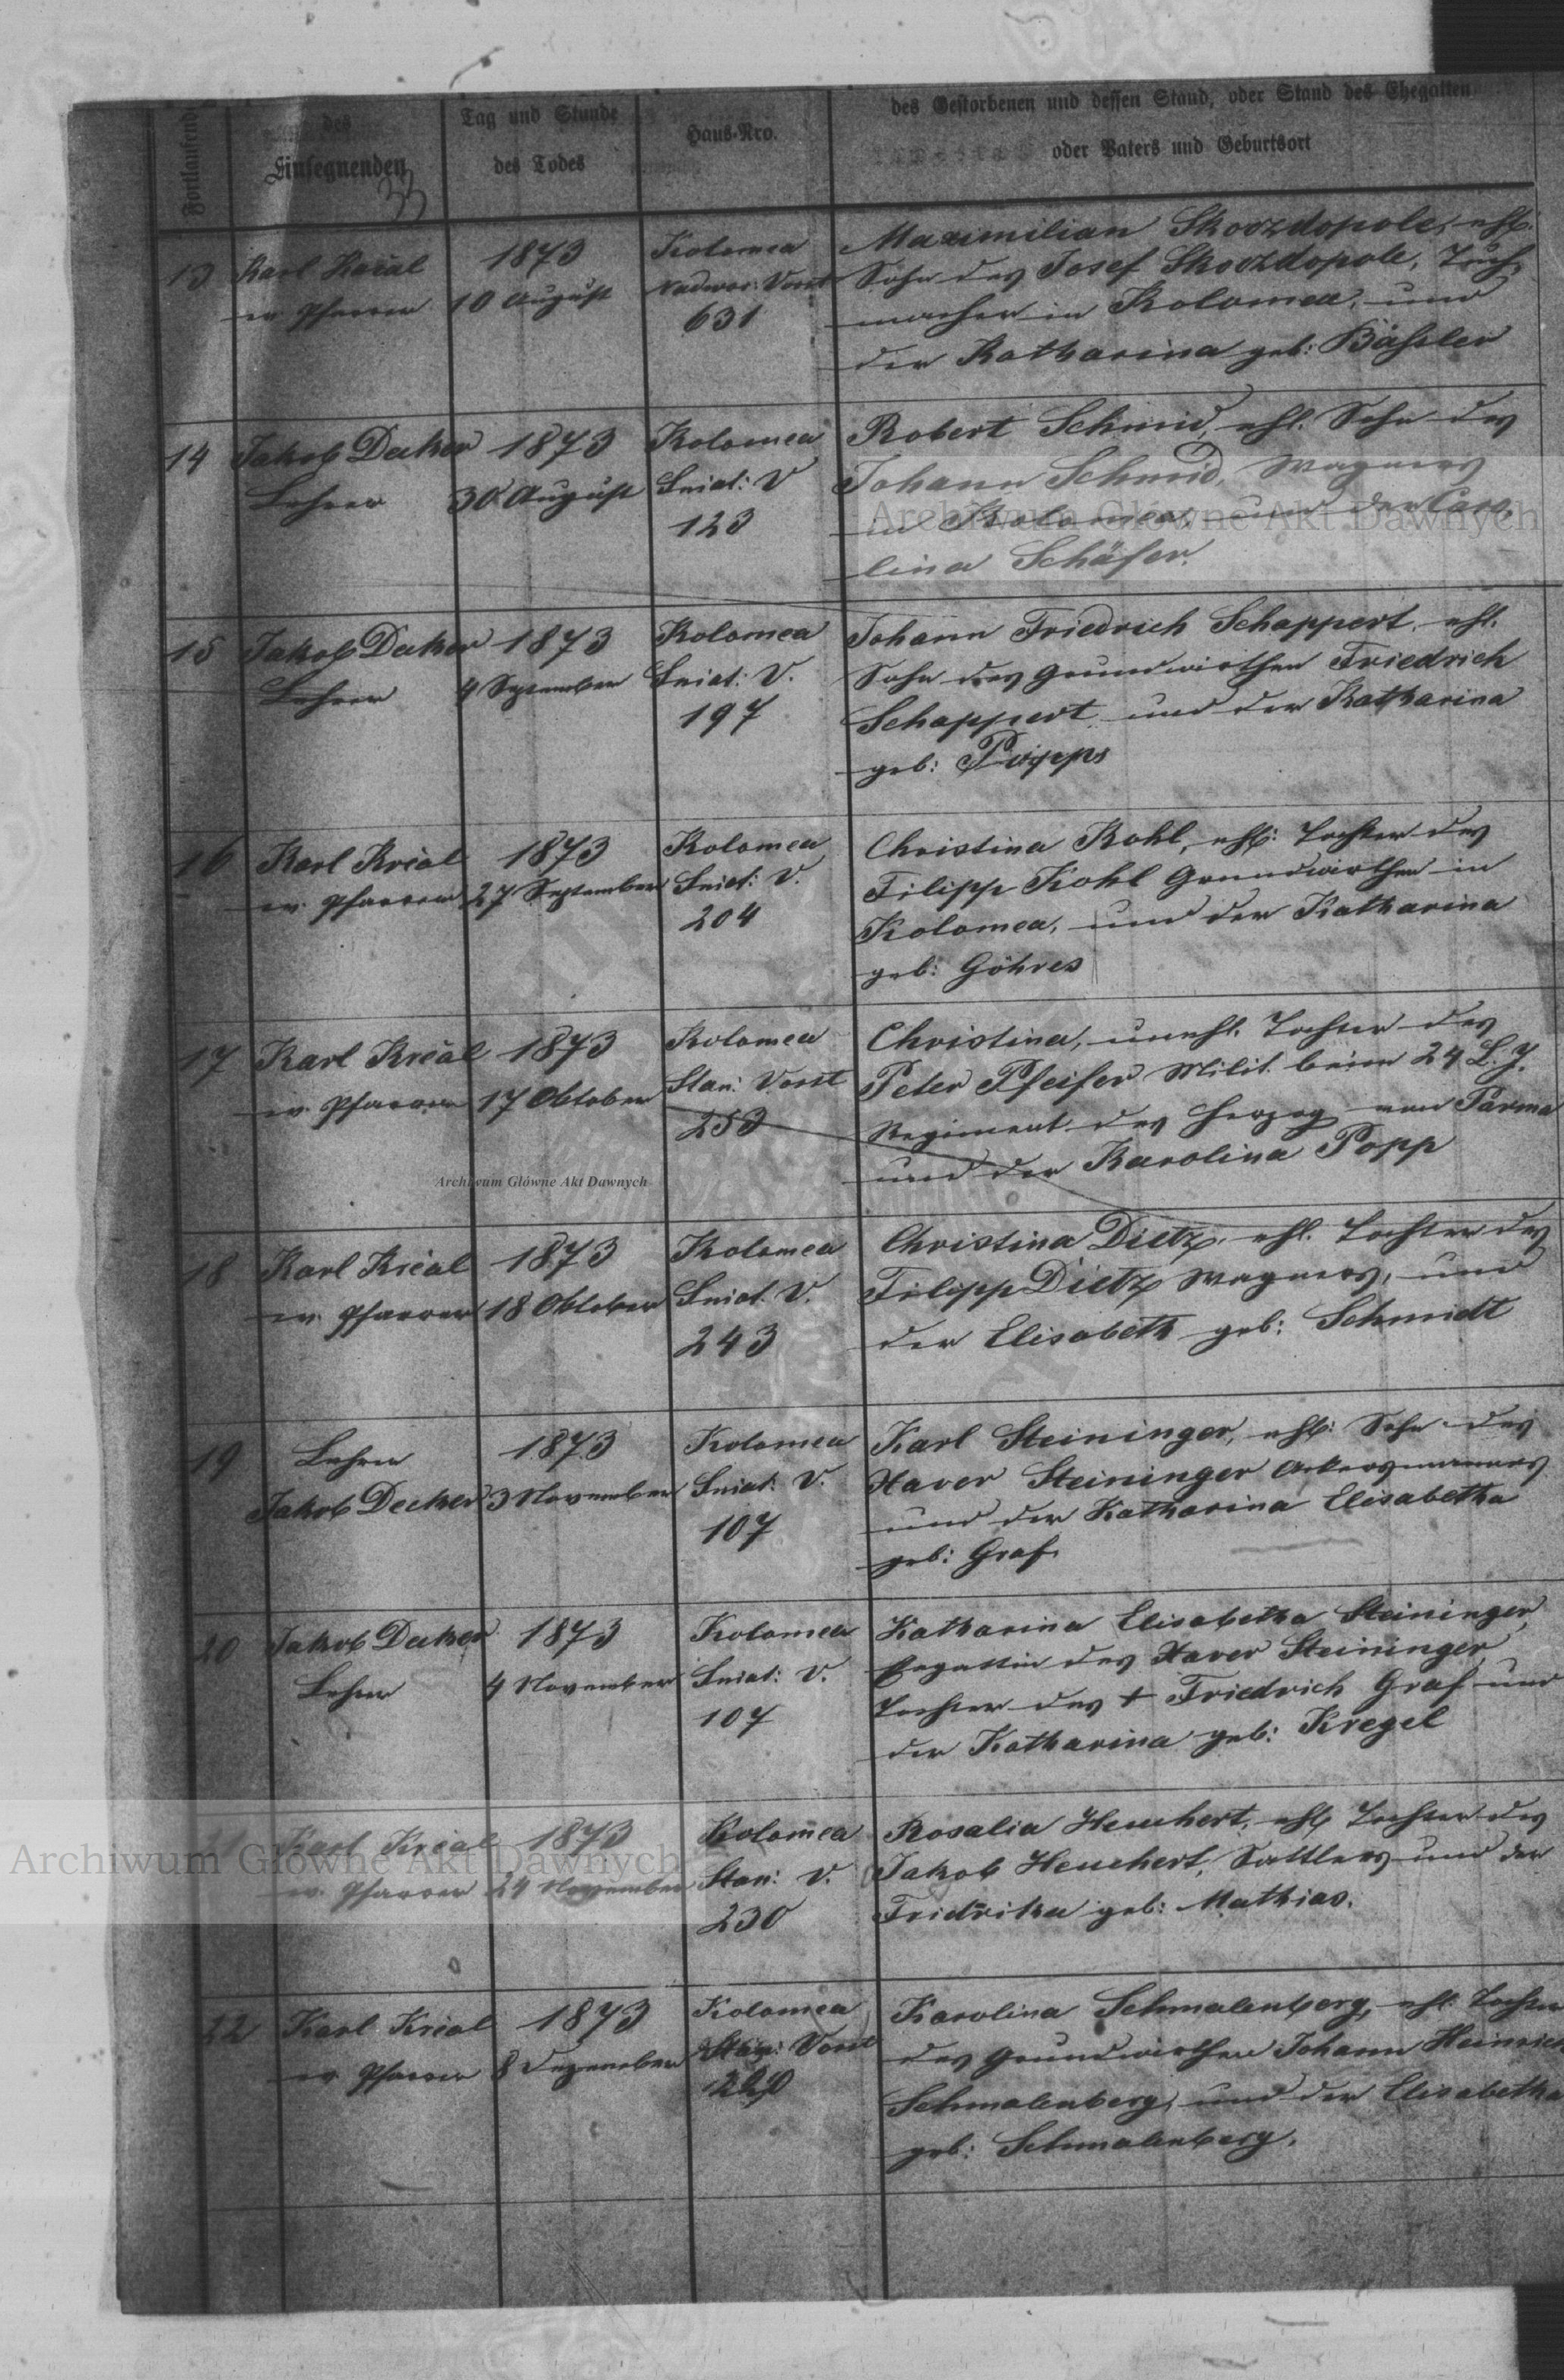 des Gestorbenen und dessen Stand, oder Stand des Ehegatten
oder Vaters und Geburtsort
Fortlaufende
des
Einsegnenden
33
Tag und Stunde
des Todes
Haus-Nro.
13
Karl Kričal
ev. Pfarrer
1873
10 August
Kolomea
Nadwor: Vorst
631
Maximilian Skorzdopole, ehl.
Sohn des Josef Skorzdopole, Tuch-
macher in Kolomea, und
der Katharina geb: Bäßler
14
Jakob Decker
Lehrer
1873
30 August
Kolomea
Sniat: V
123
Robert Schmid, ehl. Sohn des
Johann Schmid, Wagners
in Kolomea, und der Caro-
lina Schäfer.
15
Jakob Decker
Lehrer
1873
4 September
Kolomea
Sniat: V.
197
Johann Friedrich Schappert, ehl.
Sohn des Grundwirthen Friedrich
Schappert, und der Katharina
geb:
16
Karl Kričal
ev. Pfarrer
1873
27 September
Kolomea
Sniat: V.
204
Christina Kohl, ehl: Tochter des
Filipp Kohl Grundwirthen in
Kolomea, und der Katharina
geb: Göhres
17
Karl Kričal
ev. Pfarrer
1873
17 Oktober
Kolomea
Stan: Vorst
253
Christina, unehl. Tochter des
Peter Pfeifer Milit. beim 24 L. J.
Regiment des Herzog von Parma
und der Karolina Popp
18
Karl Kričal
ev. Pfarrer
1873
18 Oktober
Kolomea
Sniat. V.
243
Christina Dietz, ehl. Tochter des
Filipp Dietz Wagners, und
der Elisabeth geb: Schmidt
19
Lehrer
Jakob Decker
1873
3 November
Kolomea
Sniat: V.
107
Karl Steininger, ehl: Sohn des
Xaver Steininger Ackersmannes
und der Katharina Elisabetha
geb: Graf
20
Jakob Decker
Lehrer
1873
4 November
Kolomea
Sniat: V.
107
Katharina Elisabetha Steininger,
Ehgattin des Xaver Steininger,
Tochter des + Friedrich Graf und
der Katharina geb: Kregel
21
Karl Kričal
ev. Pfarrer
1873
24 November
Kolomea
Stan: V.
230
Rosalia Heuchert, ehl. Tochter des
Jakob Heuchert, Sattlers und der
Fridrika geb: Mathias.
22
Karl Kričal
ev. Pfarrer
1873
8 Dezember
Kolomea
Stan: Vorst
Karolina Schmalenberg, ehl. Tochter
des Grundwirthen Johann Heinrich
Schmalenberg, und der Elisabetha
geb: Schmalenberg.
Archiwum Główne Akt Dawnych
Archiwum Główne Akt Dawnych
Archiwum Główne Akt Dawnych